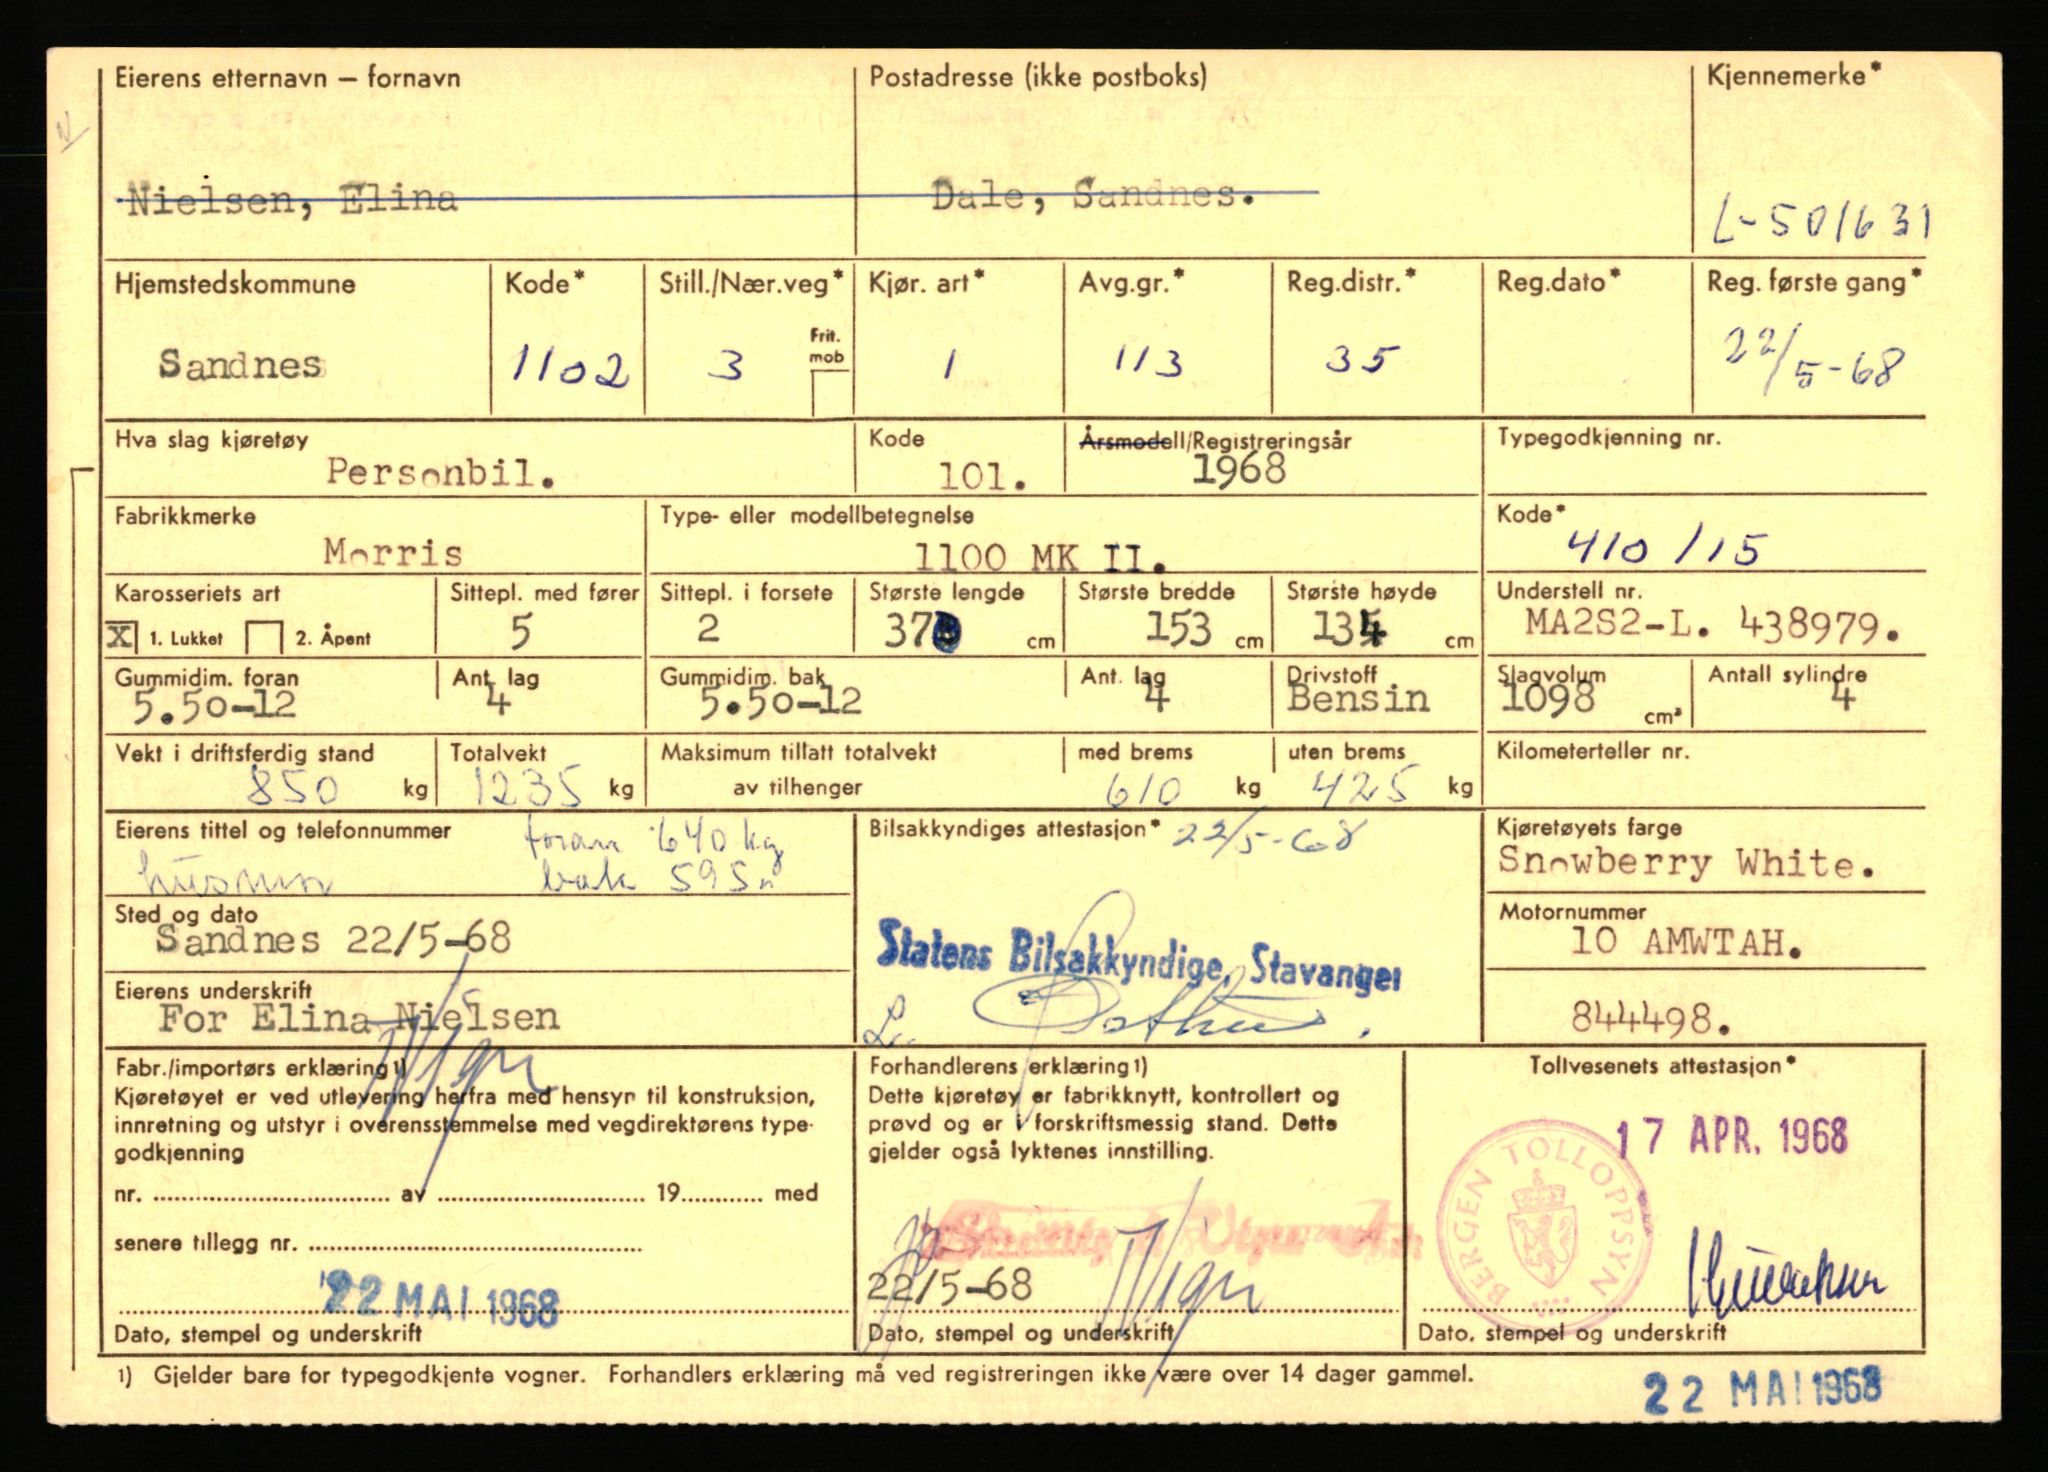 Eierens etternavn – fornavn
Postadresse (ikke postboks)
Kjennemerke*
Nielsen, Elina
Dale, Sandnes.
L-501631
Hjemstedskommune
Kode*
Still./Nær.veg*
Kjør. art*
Avg.gr.*
Reg.distr.*
Reg.dato*
Reg. første gang*
Sandnes
1102
3
Frit.
mob
1
113
35
22/5-68
Hva slag kjøretøy
Kode
Årsmodell/Registreringsår
Typegodkjenning nr.
Personbil.
101.
1968
Fabrikkmerke
Type- eller modellbetegnelse
Kode*
Morris
1100 MK II.
410/15
Karosseriets art
Sittepl. med fører
Sittepl. i forsete
Største lengde
Største bredde
Største høyde
Understell nr.
X 1. Lukket
2. Åpent
5
2
37 cm
153 cm
134 cm
MA2S2-L. 438979.
Gummidim. foran
Ant. lag
Gummidim. bak
Ant. lag
Drivstoff
Slagvolum
Antall sylindre
5.50-12
4
5.50-12
4
Bensin
1098 cm³
4
Vekt i driftsferdig stand
Totalvekt
Maksimum tillatt totalvekt
med brems
uten brems
Kilometerteller nr.
850 kg
1235 kg
av tilhenger
610 kg
425 kg
Eierens tittel og telefonnummer
foran 640 kg
Bilsakkyndiges attestasjon* 22/5-68
Kjøretøyets farge
husmor
bak 595 "
Snowberry White.
Sted og dato
Motornummer
Sandnes 22/5-68
Statens Bilsakkyndige, Stavanger
10 AMWTAH.
Eierens underskrift
For Elina Nielsen
844498.
Fabr./importørs erklæring 1)
Kjøretøyet er ved utlevering herfra med hensyn til konstruksjon,
innretning og utstyr i overensstemmelse med vegdirektørens type-
godkjenning
nr. av 19 med
senere tillegg nr.
22 MAI 1968
Dato, stempel og underskrift
Forhandlerens erklæring 1)
Dette kjøretøy er fabrikknytt, kontrollert og
prøvd og er i forskriftsmessig stand. Dette
gjelder også lyktenes innstilling.
22/5-68
Dato, stempel og underskrift
Tollvesenets attestasjon*
17 APR. 1968
BERGEN TOLLOPPSYN
Dato, stempel og underskrift
1) Gjelder bare for typegodkjente vogner. Forhandlers erklæring må ved registreringen ikke være over 14 dager gammel.
22 MAI 1968